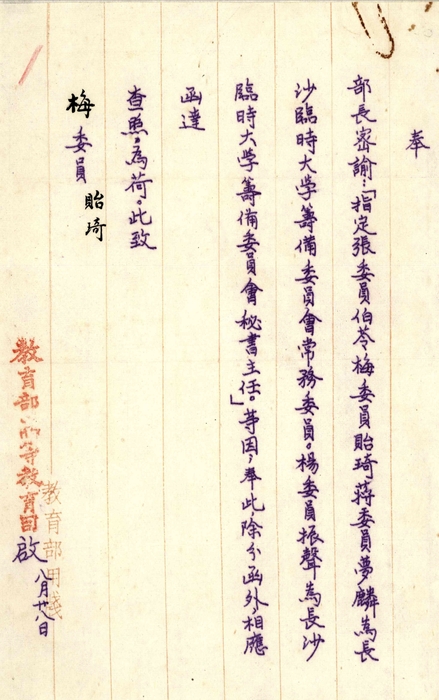 奉
部長密諭：「指定張委員伯苓梅委員貽琦蔣委員夢麟為長
沙臨時大学籌備委員會常務委員。楊委員振聲為長沙
臨時大学籌備委員會秘書主任。」等因，奉此，除分函外，相應
函達
查照，為荷。此致
梅委員貽琦
教育部高等教育司啟
八月廿八日
教育部用箋